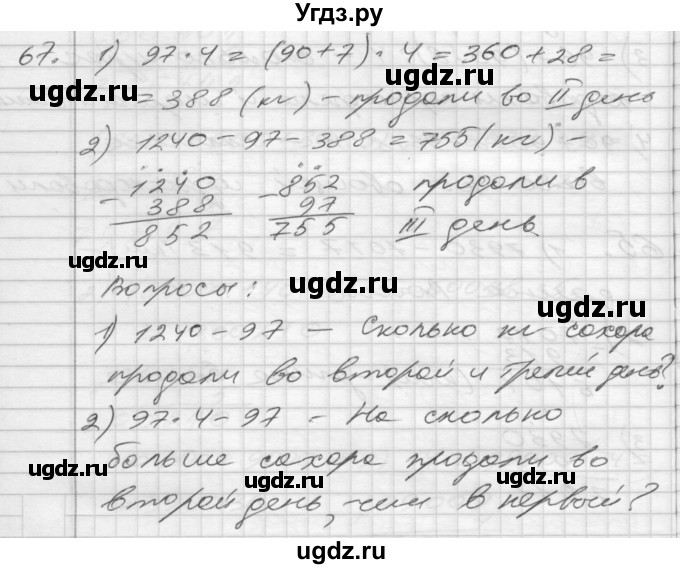 Угдз.ру
67. 1) 97 · 4 = (90 + 7) · 4 = 360 + 28 =
= 388 (кг) – продали во II день
2) 1240 – 97 – 388 = 755 (кг) –
продали в
III день
1240
– 388
852
852
– 97
755
Вопросы:
1) 1240 – 97 – Сколько кг сахара
продали во второй и третий день?
2) 97 · 4 – 97 – На сколько
больше сахара продали во
второй день, чем в первый?
ugdz.ru
ugdz.ru
ugdz.ru
ugdz.ru
ugdz.ru
ugdz.ru
ugdz.ru
ugdz.ru
ugdz.ru
ugdz.ru
ugdz.ru
ugdz.ru
ugdz.ru